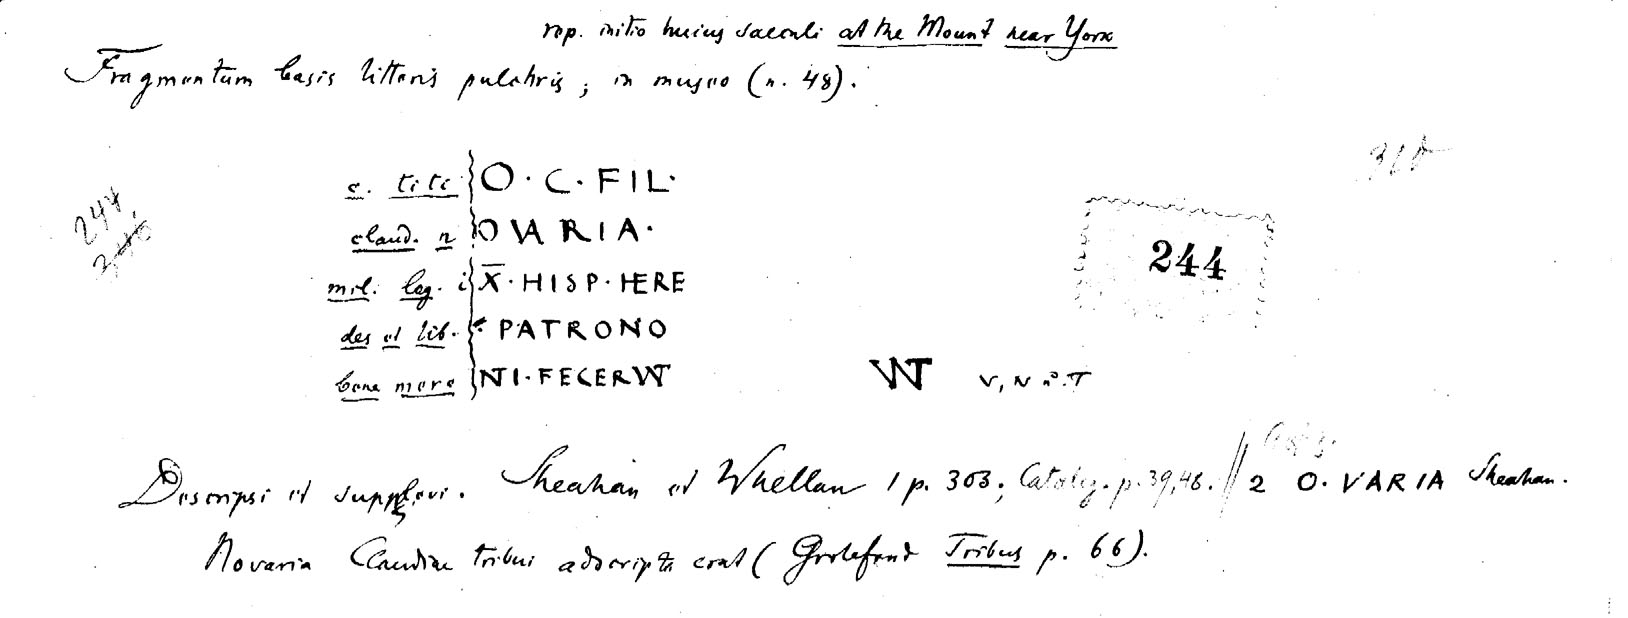 rep. initio huius saeculi at the Mount near York
Fragmentum basis litteris pulchris; in museo (n. 48).
c. titi O · C · FIL ·
claud. n OVARIA ·
mil. leg. i X̅ · HISP · HERE
des et lib. · PATRONO
bene mere NTI · FECERVNT
VNT V, N et T
244
244
Descripsi et supplevi. Sheahan et Whellan 1 p. 303; Catalog. p. 39, 48. // 2 O · VARIA Sheahan.
Novaria Claudiae tribui adscripta erat (Grotefend Tribus p. 66).